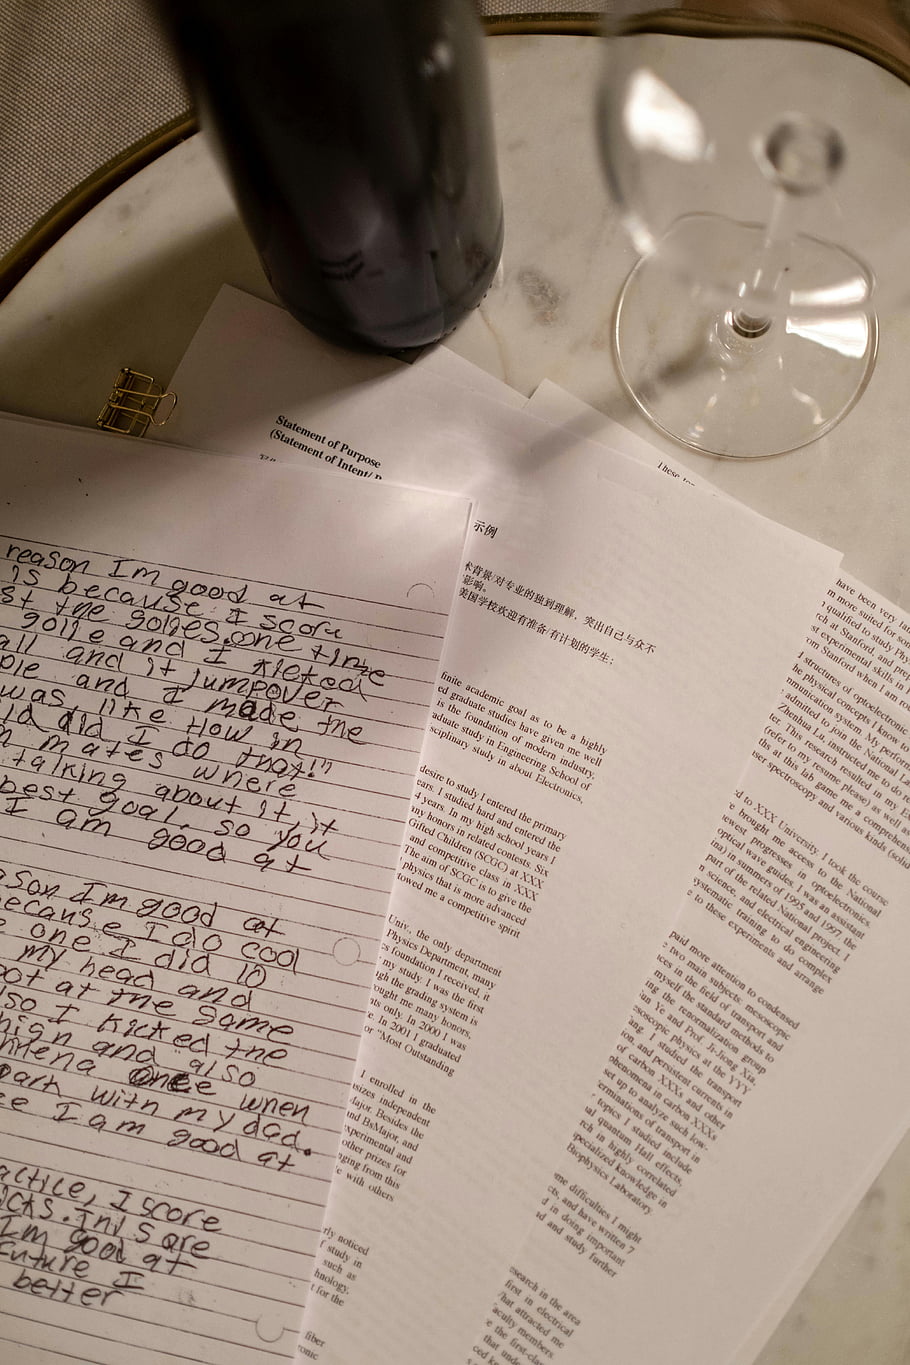 Statement of Purpose
(Statement of Intent/
These
示例
术背景/对专业的独到理解，突出自己与众不
影响。
美国学校欢迎有准备/有计划的学生；
reason Im good at
is because I score
st the golies. one time
golie and I kicked
all and it jumpover
ple and I made the
was like "How in
ld did I do that!"
m mates where
talking about it, it
best goal. so you
I am good at
ason Im good at
ecause I do cool
e one I did 10
my head and
oot at the same
lso I kicked the
high and also
once when
park with my dad.
ee I am good at
actice, I score
icks. Inj s are
Im good at
future I
better
finite academic goal as to be a highly
ed graduate studies have given me well
is the foundation of modern industry,
aduate study in Engineering School of
sciplinary study in about Electronics,
desire to study I entered the primary
ears. I studied hard and entered the
4 years. In my high school years I
ny honors in related contests. Six
Gifted Children (SCGC) at XXX
and competitive class in XXX
The aim of SCGC is to give the
physics that is more advanced
towed me a competitive spirit
Univ., the only department
Physics Department, many
foundation I received, it
my study. I was the first
gh the grading system is
ought me many honors,
nts only. In 2000 I was
e. In 2001 I graduated
or "Most Outstanding
I enrolled in the
sizes independent
Major. Besides the
nd BsMajor, and
xperimental and
other prizes for
nging from this
e with others
rly noticed
f study in
such as
hnology.
t for the
fiber
ronic
have been very
m more suited for
n qualified to study Phy
rch at Stanford, and prep
st experimental skills in
om Stanford when I am
d structures of optoelectronic
he physical concepts I know to
mmunication system. My perform
admitted to join the National La
Zhenhua Lu, instructed me to do re
ter. This research resulted in my E
(refer to my resume please) as well as
ths at this lab gave me a comprehens
ser spectroscopy and various kinds (solid
d to XXX University. I took the course
e brought me access to the National
ewest progresses in optoelectronics
optical wave guides. I was an assistant
ina) in summers of 1995 and 1997 the
part of the related National project. I
n science, and electrical engineering
ystematic training to do complex
e to these experiments and arrange
paid more attention to condensed
e two main subjects: mesoscopic
ices in the field of transport and
myself the standard methods to
ing the renormalization group
un Ye and Prof. Ji-Jiong Xia,
esoscopic physics at the YYY
ang. I studied the transport
ion and persistent currents in
of carbon XXXs and other
phenomena in carbon XXXs
set up to analyze such low-
erminations of transport in
topics I studied include
ual quantum Hall effects,
rch in highly correlated
pecialized knowledge in
Biophysics Laboratory
me difficulties I might
cts, and have written 7
d in doing important
d and study further
esearch in the area
first in electrical
What attracted me
aculty members
e the first-class
that under